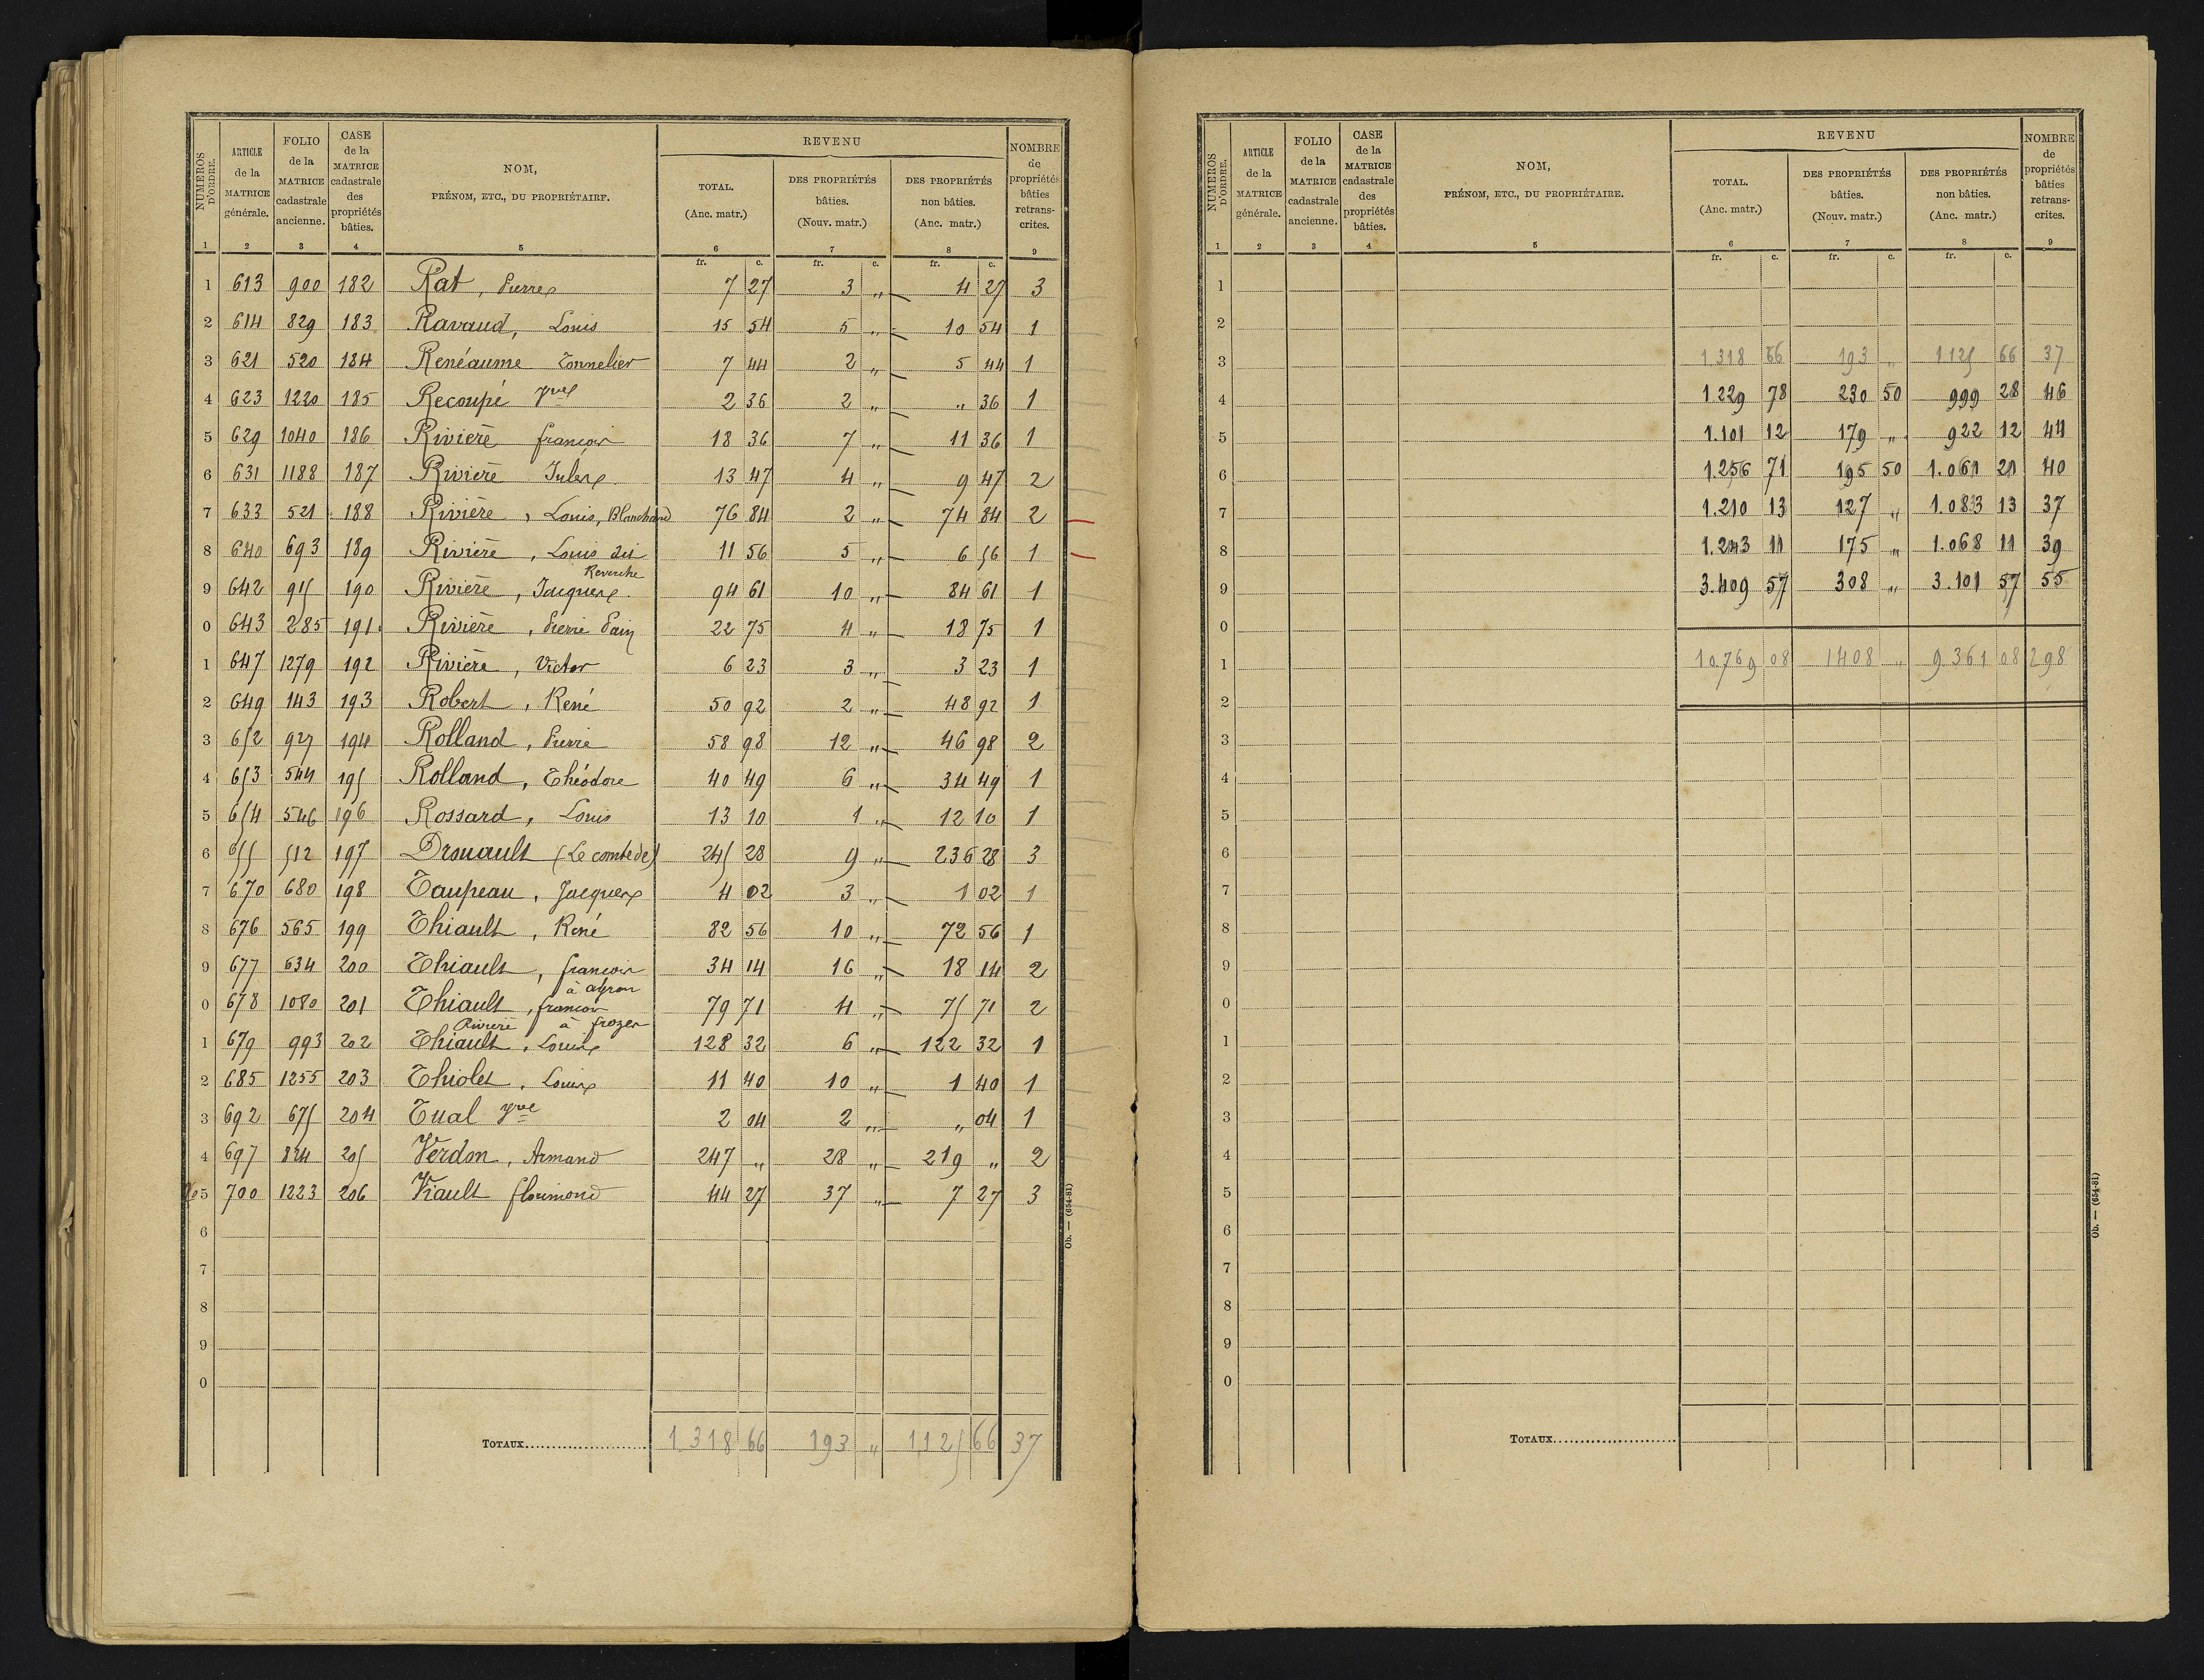 NUMÉROS D'ORDRE. | ARTICLE de la MATRICE générale. | FOLIO de la MATRICE cadastrale ancienne. | CASE de la MATRICE cadastrale des propriétés bâties. | NOM, PRÉNOM, ETC., DU PROPRIÉTAIRE. | REVENU TOTAL. (Anc. matr.) | DES PROPRIÉTÉS bâties. (Nouv. matr.) | DES PROPRIÉTÉS non bâties. (Anc. matr.) | NOMBRE de propriétés bâties retranscrites.
1 2 3 4 5 6 7 8 9
fr. c. fr. c. fr. c.
1 613 900 182 Rat, Pierre 7 27 3 " 4 27 3
2 614 829 183 Ravaud, Louis 15 54 5 " 10 54 1
3 621 520 184 Renéaume Tonnelier 7 44 2 " 5 44 1
4 623 1220 185 Recoupé Yves 2 36 2 " " 36 1
5 629 1040 186 Rivière françois 18 36 7 " 11 36 1
6 631 1188 187 Rivière Jules 13 47 4 " 9 47 2
7 633 521 188 Rivière, Louis, Blanchard 76 84 2 " 74 84 2
8 640 693 189 Rivière, Louis dit 11 56 5 " 6 56 1
9 642 915 190 Rivière, Jacques 94 61 10 " 84 61 1
0 643 285 191 Rivière, Pierre Pain 22 75 4 " 18 75 1
1 647 1279 192 Rivière, Victor 6 23 3 " 3 23 1
2 649 143 193 Robert, René 50 92 2 " 48 92 1
3 652 927 194 Rolland, Pierre 58 98 12 " 46 98 2
4 653 544 195 Rolland, Théodore 40 49 6 " 34 49 1
5 654 546 196 Rossard, Louis 13 10 1 " 12 10 1
6 655 512 197 Drouault (Le comte de) 245 28 9 " 236 28 3
7 670 680 198 Taupeau, Jacques 4 02 3 " 1 02 1
8 676 565 199 Thiault, René 82 56 10 " 72 56 1
9 677 634 200 Thiault, françois 34 14 16 " 18 14 2
à ayron
0 678 1080 201 Thiault, françois 79 71 4 " 75 71 2
Rivière à frozes
1 679 993 202 Thiault, Louis 128 32 6 " 122 32 1
2 685 1255 203 Thiolet, Louis 11 40 10 " 1 40 1
3 692 675 204 Tual Yve 2 04 2 " " 04 1
4 697 824 205 Verdon, Armand 247 " 28 " 219 " 2
5 700 1223 206 Viault florimond 44 27 37 " 7 27 3
6
7
8
9
0
TOTAUX 1318 66 193 " 1,125 66 37
Ob. — (654-81)
NUMÉROS D'ORDRE. | ARTICLE de la MATRICE générale. | FOLIO de la MATRICE cadastrale ancienne. | CASE de la MATRICE cadastrale des propriétés bâties. | NOM, PRÉNOM, ETC., DU PROPRIÉTAIRE. | REVENU TOTAL. (Anc. matr.) | DES PROPRIÉTÉS bâties. (Nouv. matr.) | DES PROPRIÉTÉS non bâties. (Anc. matr.) | NOMBRE de propriétés bâties retranscrites.
1 2 3 4 5 6 7 8 9
fr. c. fr. c. fr. c.
1
2
3 1318 66 193 " 1125 66 37
4 1.229 78 230 50 999 28 46
5 1.101 12 179 " 922 12 44
6 1.256 71 195 50 1.061 21 40
7 1.210 13 127 " 1.083 13 37
8 1.243 11 175 " 1.068 11 39
9 3.409 57 308 " 3.101 57 55
0
1 10.769 08 1408 " 9.361 08 298
2
3
4
5
6
7
8
9
0
1
2
3
4
5
6
7
8
9
0
TOTAUX
Ob. — (654-81)